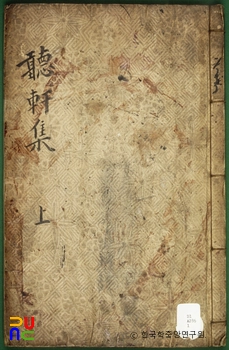 聽軒集
上
© 한국학중앙연구원